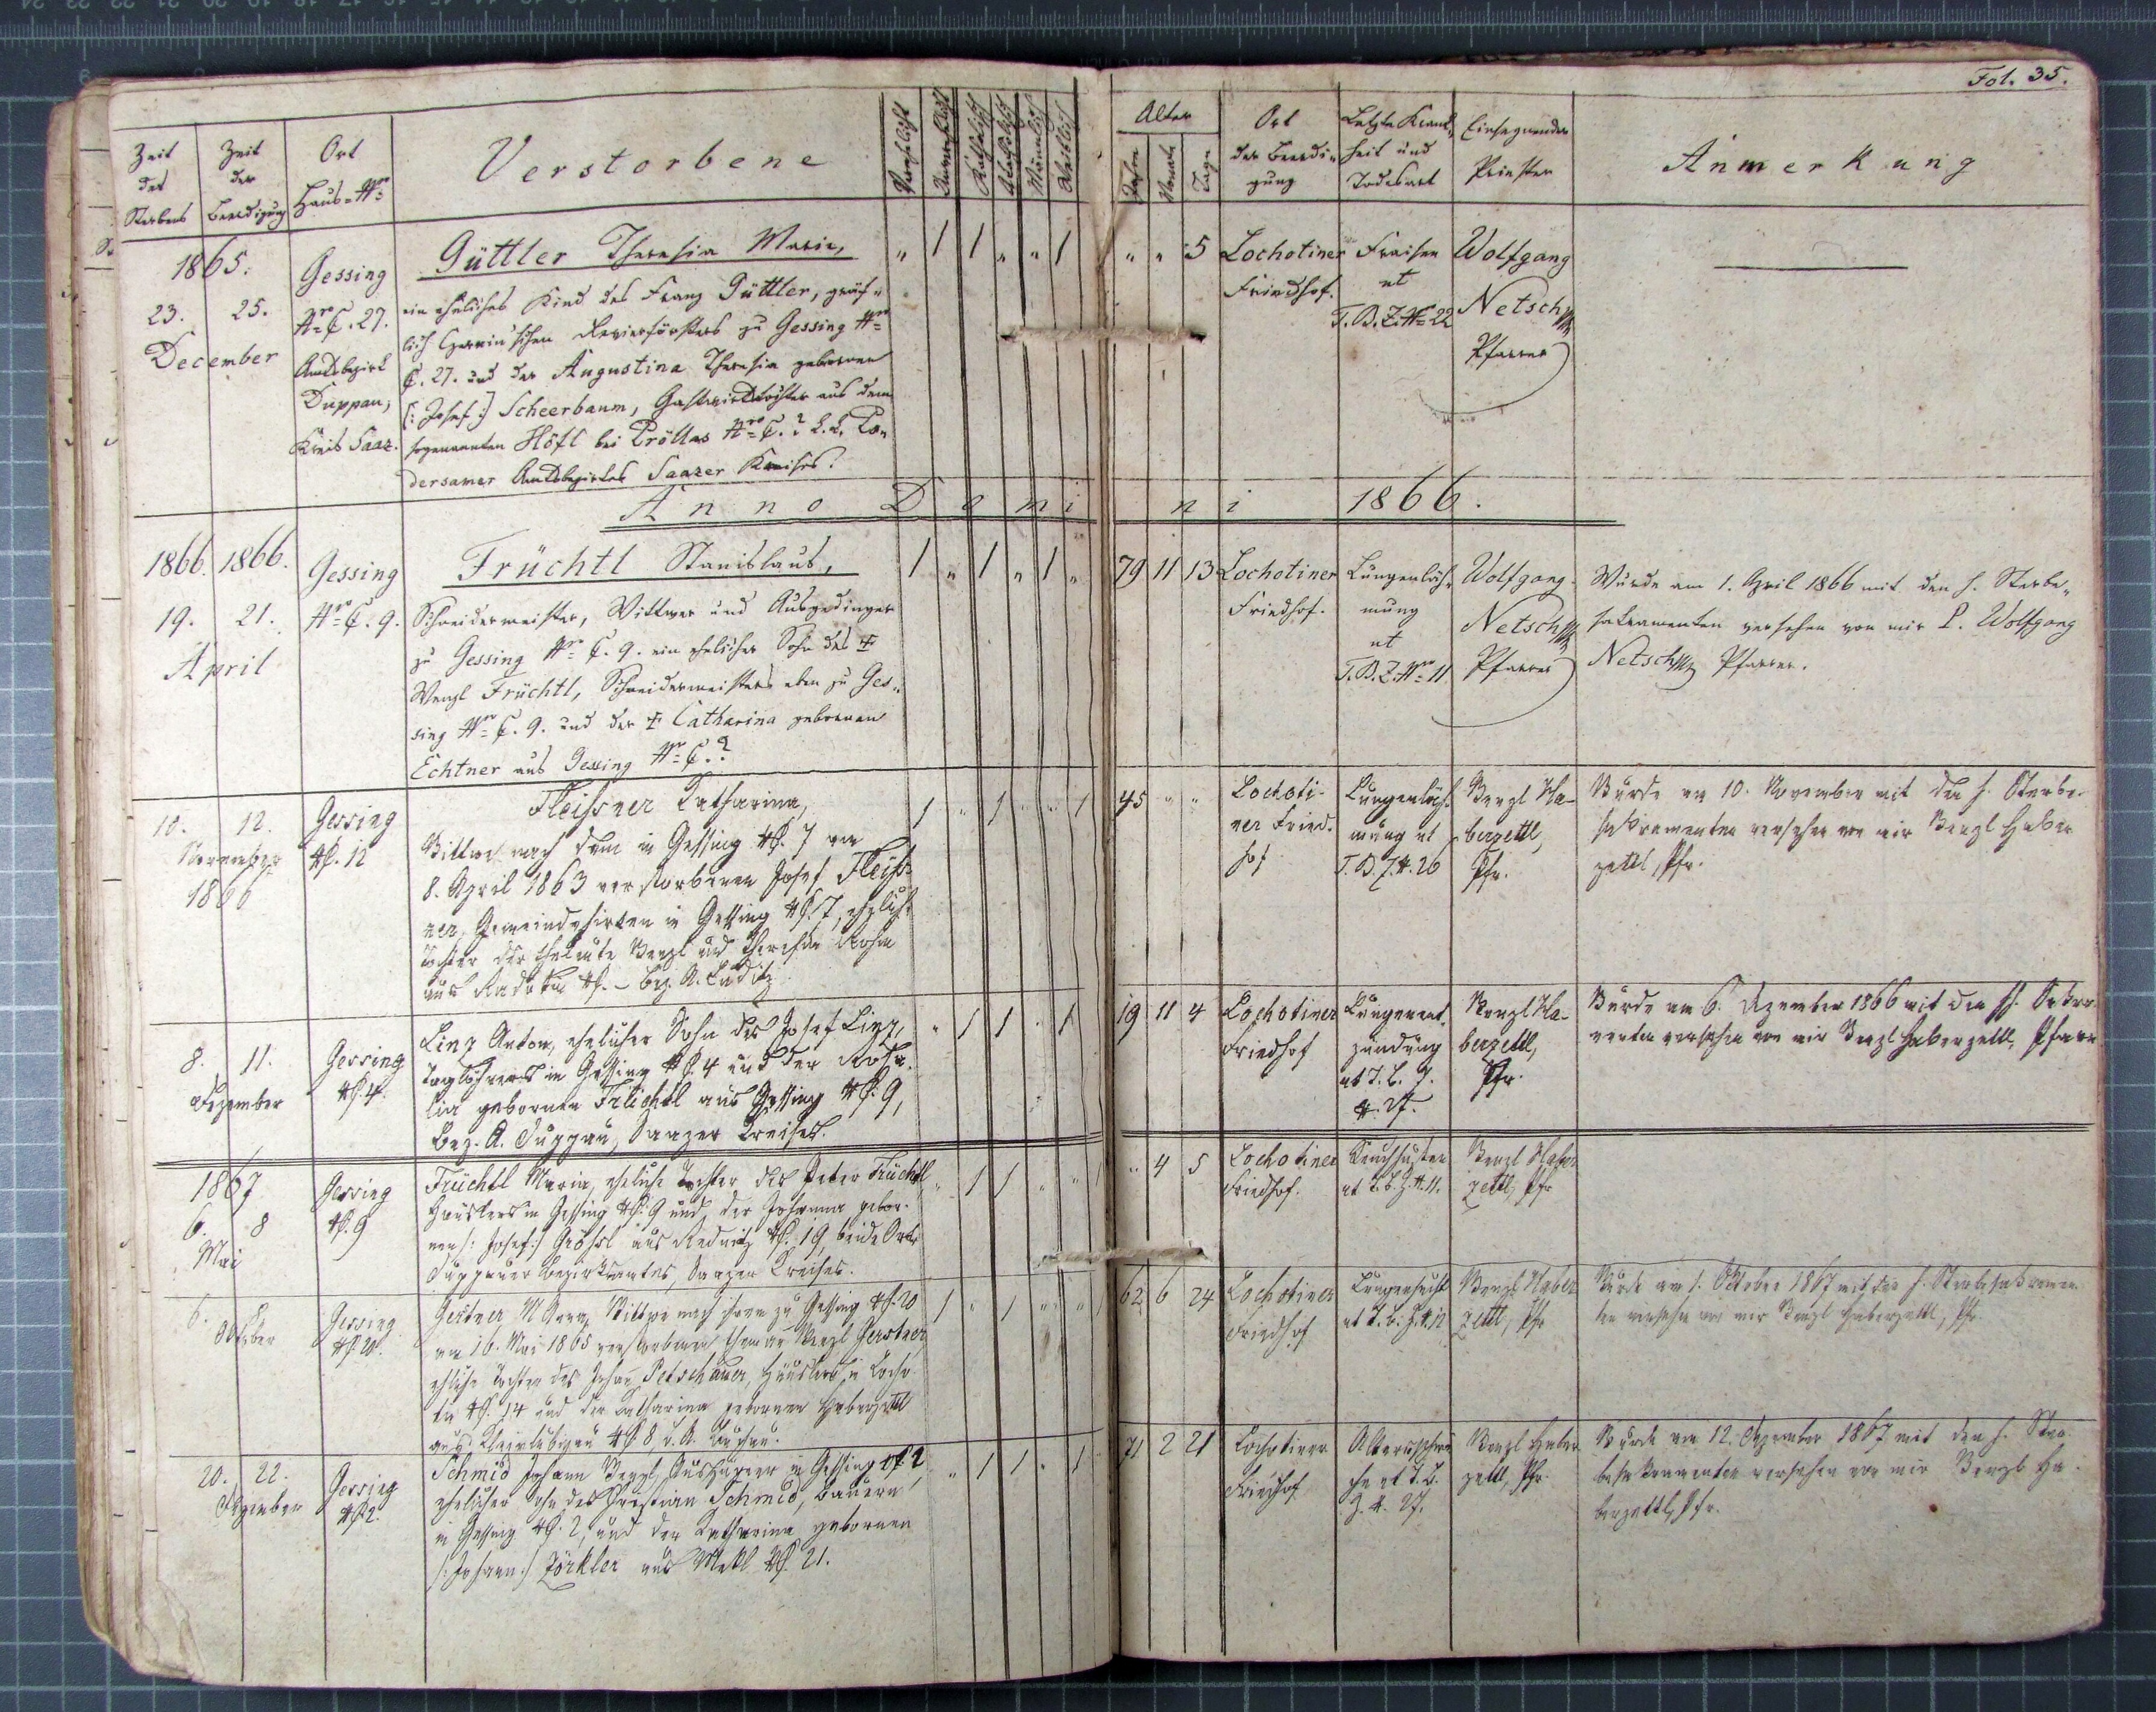 Fol. 35.
Zeit des Sterbens
Zeit der Beerdigung
Ort Haus-Nro
Verstorbene
Verehelicht
Unverehelicht
Katholisch
Akatholisch
Männlich
Weiblich
Alter
Jahre
Monate
Tage
Ort der Beerdigung
Letzte Krankheit und Todesart
Einsegnender Priester
Anmerkung
1865.
23. 25.
December
Gessing
Nro C. 27.
Amtsbezirk
Duppau,
Kreis Saaz.
Güttler Theresia Maria,
ein eheliches Kind des Franz Güttler, gräf„
lich Czernin'schen Revierförsters zu Gessing Nro
C. 27. und der Augustina Theresia geborenen
[: Josef :] Scheerbaum, Gastwirthstochter aus dem
sogenannten Höfl bei Pröllas Nro C. ? k. k. Po„
dersamer Amtsbezirkes Saazer Kreises.
„ 1 1 „ „ 1
„ „ 5
Lochotiner
Friedhof.
Fraisen
ut
T. B. Z. Nro 22
Wolfgang
Netsch
Pfarrer
Anno Domini 1866.
1866. 1866.
19. 21.
April
Gessing
Nro C. 9.
Früchtl Stanislaus,
Schneidermeister, Wittwer und Ausgedinger
zu Gessing Nro C. 9. ein ehelicher Sohn des ✝
Wenzl Früchtl, Schneidermeisters eben zu Ges„
sing Nro C. 9. und der ✝ Catharina geborenen
Echtner aus Gessing Nro C. ?
1 „ 1 „ 1 „
79 11 13
Lochotiner
Friedhof.
Lungenläh„
mung
ut
T. B. Z. Nro 11.
Wolfgang
Netsch
Pfarrer
Wurde am 1. April 1866 mit den h. Sterbe„
sakramenten versehen von mir P. Wolfgang
Netsch Pfarrer.
10. 12.
November
1866
Gessing
N.C. 12
Fleissner Katharina,
Wittwe nach dem in Gessing N.C. 7 am
8. April 1863 verstorbenen Josef Fleiss-
ner, Gemeindehirten in Gessing N.C. 7, eheliche
Tochter der Eheleute Wenzl und Theresia
aus N.C. – Bez. A. Luditz
1 „ 1 „ „ 1
45 „ „
Lochoti-
ner Fried-
hof
Lungenläh-
mung ut
T. B. Z. N. 26
Wenzl Ha-
berzettl,
Pfr.
Wurde am 10. November mit den h. Sterbe-
sakramenten versehen von mir Wenzl Haber
zettl, Pfr.
8. 11.
Dezember
Gessing
N.C. 4.
Linz Anton, ehelicher Sohn des Josef Linz,
Taglöhners in Gessing N.C. 4 und der Rosa-
lia gebornen Früchtl aus Gessing N.C. 9,
Bez. A. Duppau, Saazer Kreises.
„ 1 1 „ 1
19 11 4
Lochotiner
Friedhof
Lungenent-
zündung
ut T. B. Z.
N. 27.
Wenzl Ha-
berzettl,
Pfr.
Wurde am 6. Dezember 1866 mit den hh. Sakra-
menten versehen von mir Wenzl Haberzettl, Pfarrer
1867
6. 8
Mai
Gessing
N.C. 9
Früchtl Maria, eheliche Tochter des Peter Früchtl
Häuslers in Gessing N.C. 9 und der Johanna gebor-
nen /: Josef :/ Grössl aus Rednitz N.C. 19, beide Orte
Duppauer Bezirksamtes, Saazer Kreises.
„ 1 1 „ „ 1
„ 4 5
Lochotiner
Friedhof.
Keuchhusten
ut T. B. Z. N. 11.
Wenzl Haber
zettl, Pfr
6. 8
Oktober
Gessing
N.C. 20.
Gerstner M Anna, Wittwe nach ihrem zu Gessing N.C. 20
am 16. Mai 1865 verstorbenen Ehemann Wenzl Gerstner,
eheliche Tochter des Johan Petschauer, Häuslers in Locho-
tin N.C. 14 und der Katharina gebornen Haberzettl
aus N.C. 8, B. A. Buchau.
1 „ 1 „ „ 1
62 6 24
Lochotiner
Friedhof
Lungensucht
ut T. B. Z. N. 12
Wenzl Haber
zettl, Pfr
Wurde am 1. Oktober 1867 mit den h. Sterbesakramen-
ten versehen von mir Wenzl Haberzettl, Pfr
20. 22.
Dezember
Gessing
N.C. 2.
Schmid Johann Wenzl, Auszügner in Gessing N.C. 2
ehelicher Sohn des Christian Schmid, Bauern
in Gessing N.C. 2, und der Katharina gebornen
/: Johann :/ Zörkler aus Mekl N.C. 21.
„ 1 1 „ 1
71 2 21
Lochotiner
Friedhof
Altersschwä
che ut T. B.
Z. N. 27.
Wenzl Haber
zettl, Pfr.
Wurde am 12. Dezember 1867 mit den h. Ster-
besakramenten versehen von mir Wenzl Ha-
berzettl, Pfr.